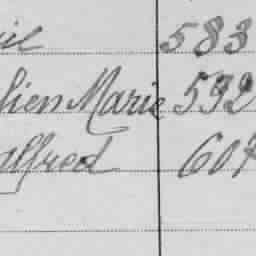 583
lien Marie 592
alfred 607